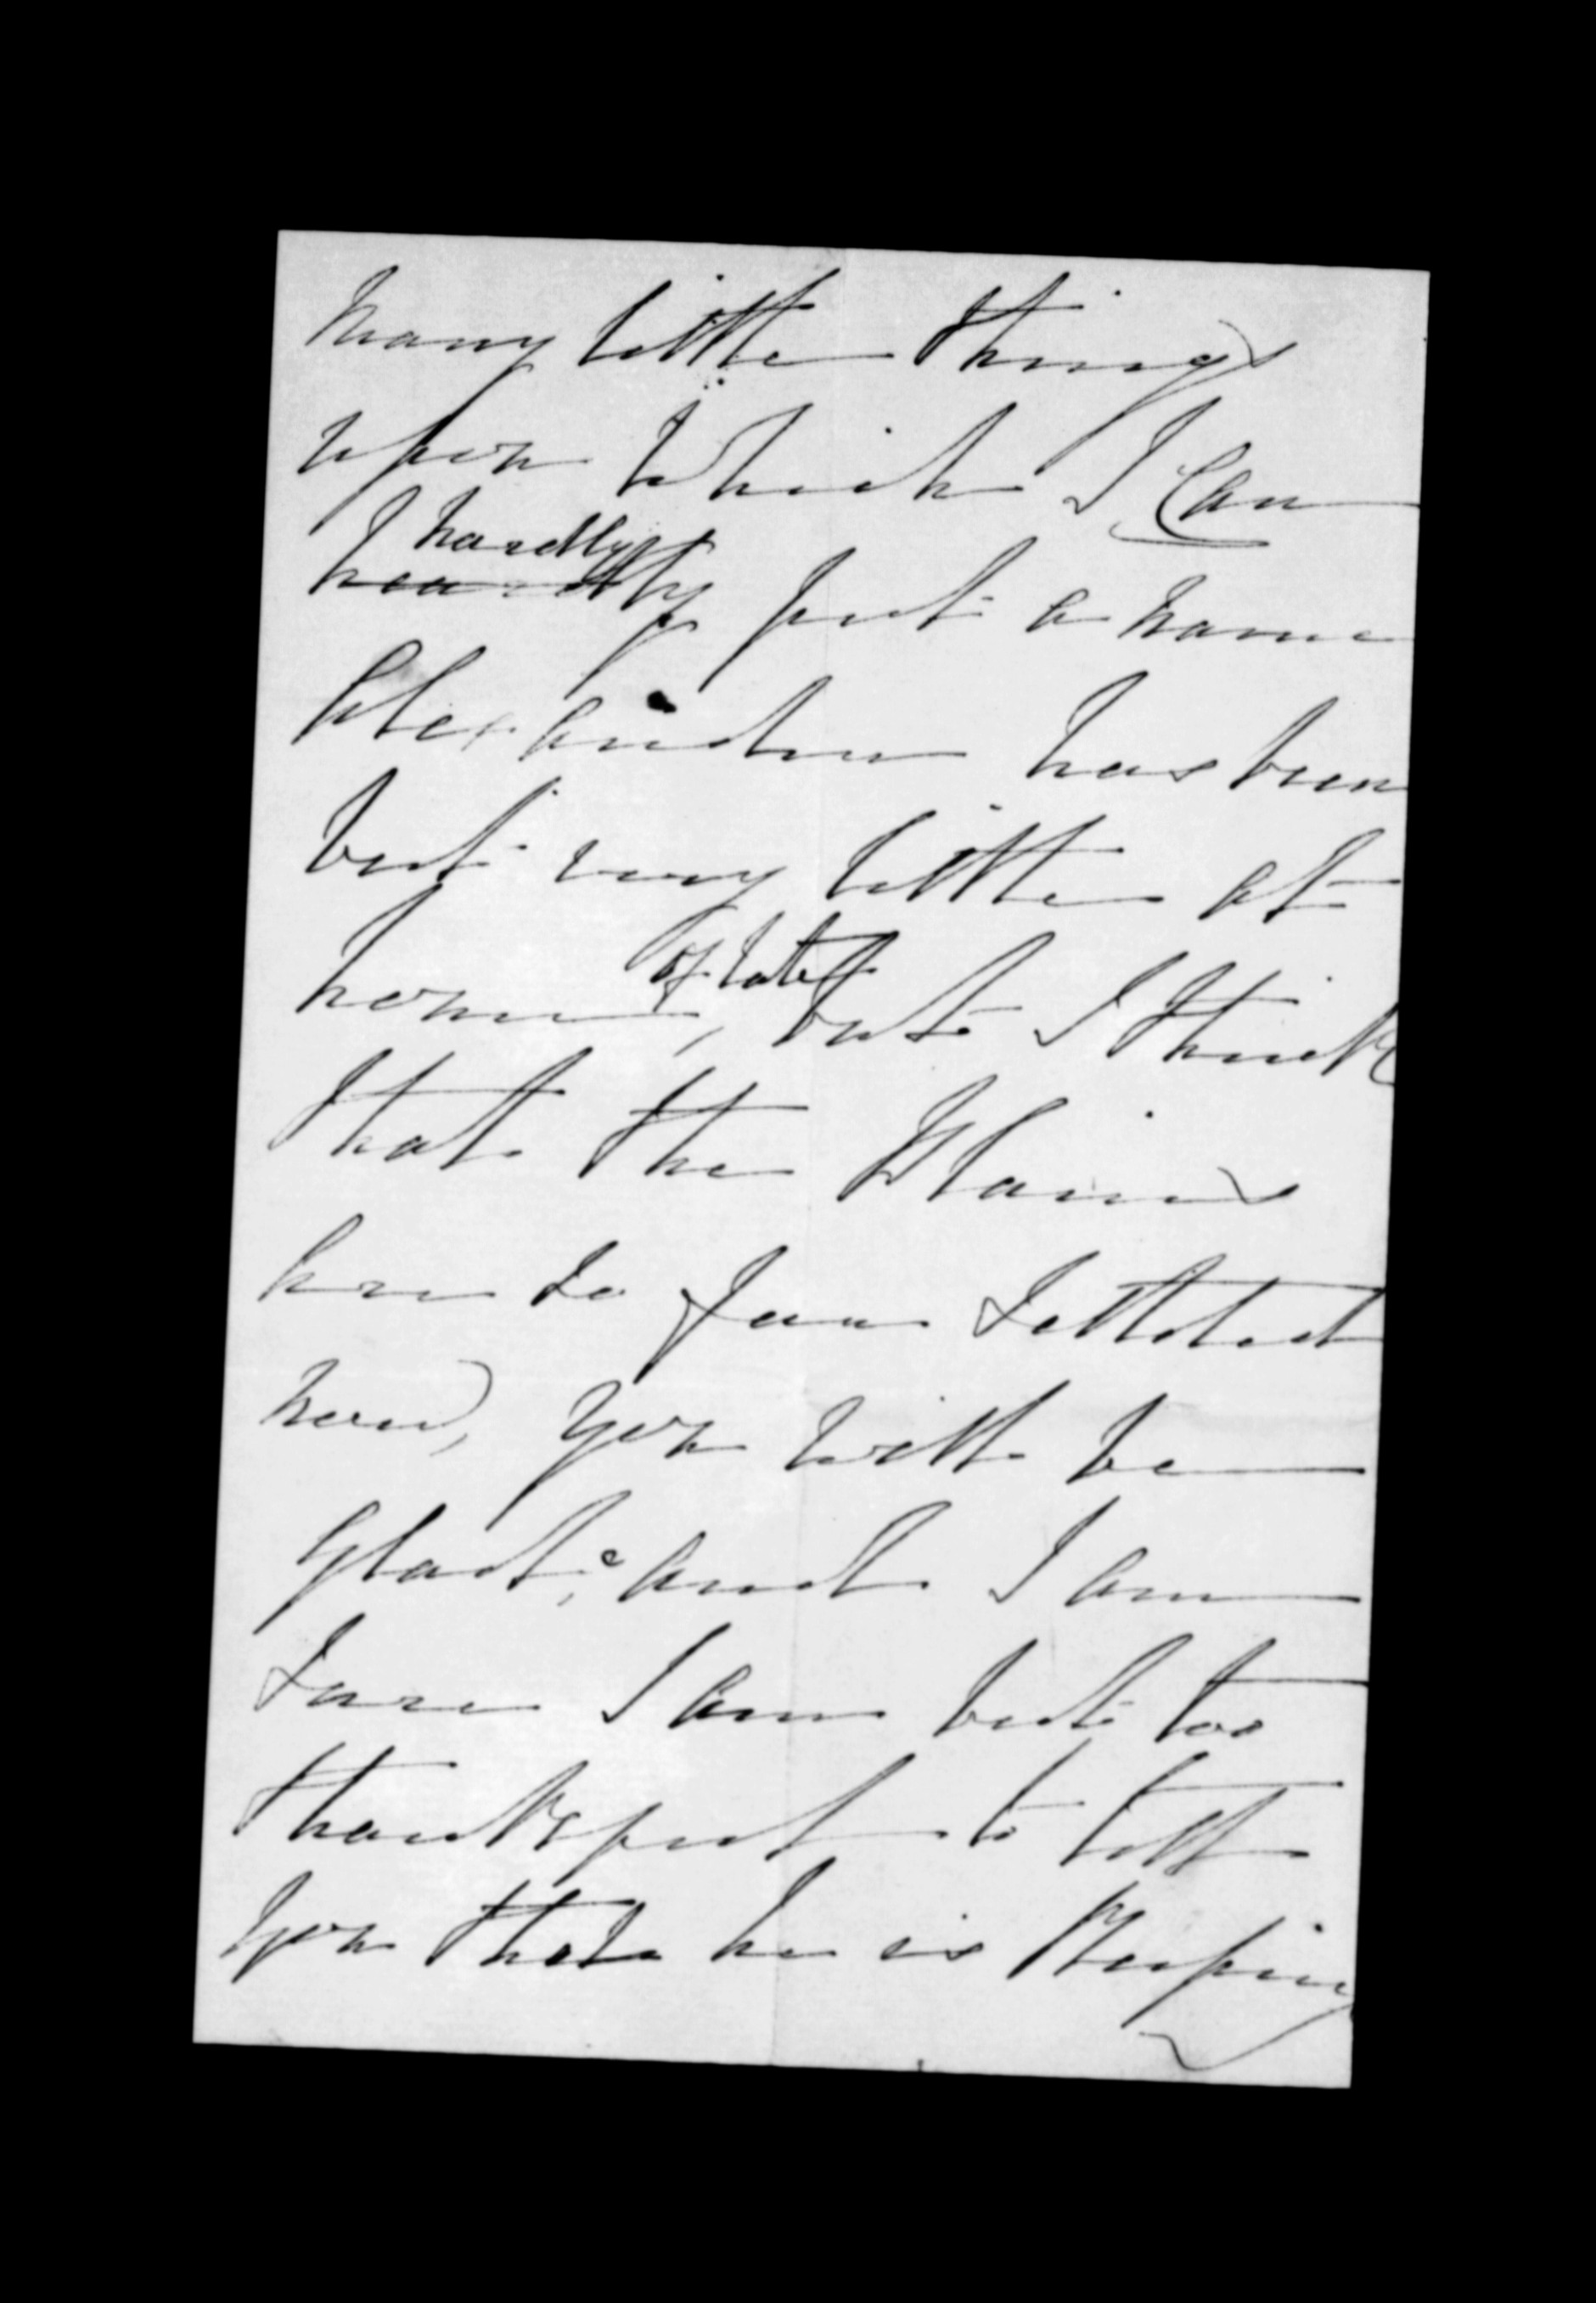 many little things
upon which I can
hardly
hardly put a name
Alexander has been
but very little at
of late
home, but I think
that the Plains
are so far settled
now, you will be
glad, and I am
sure I am but too
thankful to tell
you that he is keeping